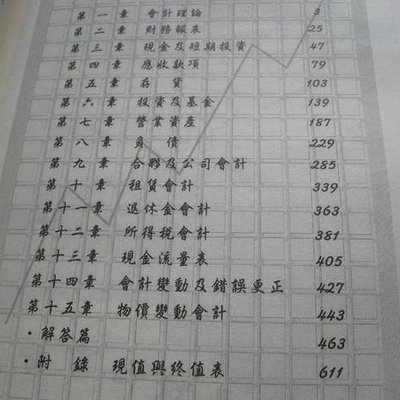 第一章 會計理論 3
第二章 財務報表 25
第三章 現金及短期投資 47
第四章 應收款項 79
第五章 存貨 103
第六章 投資及基金 139
第七章 營業資產 187
第八章 負債 229
第九章 合夥及公司會計 285
第十章 租賃會計 339
第十一章 退休金會計 363
第十二章 所得稅會計 381
第十三章 現金流量表 405
第十四章 會計變動及錯誤更正 427
第十五章 物價變動會計 443
·解答篇 463
·附錄 現值與終值表 611